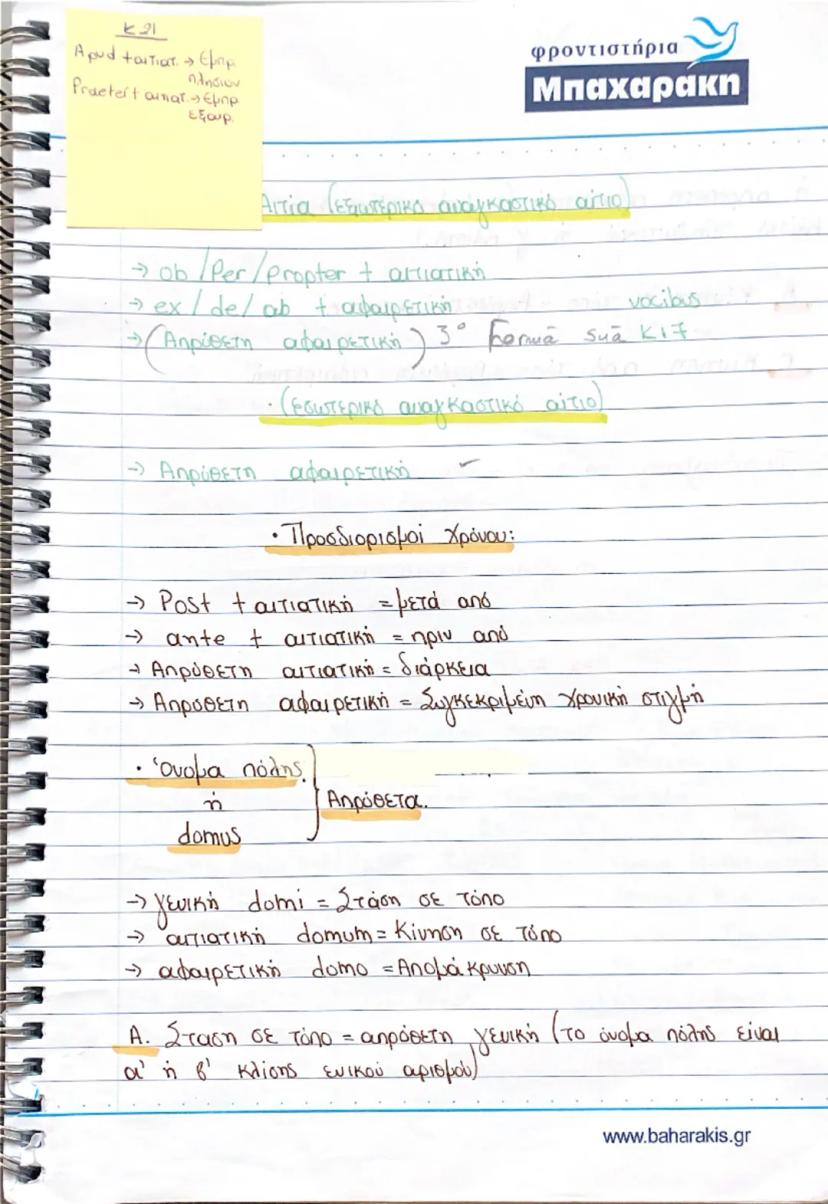 Κ 21
Apud + αιτιατ. → εμπρ.
πλησίον
Praeter + αιτιατ. → εμπρ.
εξαιρ.
φροντιστήρια
Μπαχαράκη
Αιτία (εξωτερικό αναγκαστικό αίτιο)
→ ob / Per / propter + αιτιατική
→ ex / de / ab + αφαιρετική vocibus
→ (Απρόθετη αφαιρετική) 3° Formā suā Κ17
• (εσωτερικό αναγκαστικό αίτιο)
→ Απρόθετη αφαιρετική ✓
• Προσδιορισμοί χρόνου:
→ Post + αιτιατική = μετά από
→ ante + αιτιατική = πριν από
→ Απρόθετη αιτιατική = διάρκεια
→ Απρόθετη αφαιρετική = Συγκεκριμένη χρονική στιγμή
• Όνομα πόλης
ή
Απρόθετα.
domus
→ γενική domi = Στάση σε τόπο
→ αιτιατική domum = Κίνηση σε τόπο
→ αφαιρετική domo = Απομάκρυνση
Α. Στάση σε τόπο = απρόθετη γενική (το όνομα πόλης είναι
α' ή β' κλίσης ενικού αριθμού)
www.baharakis.gr